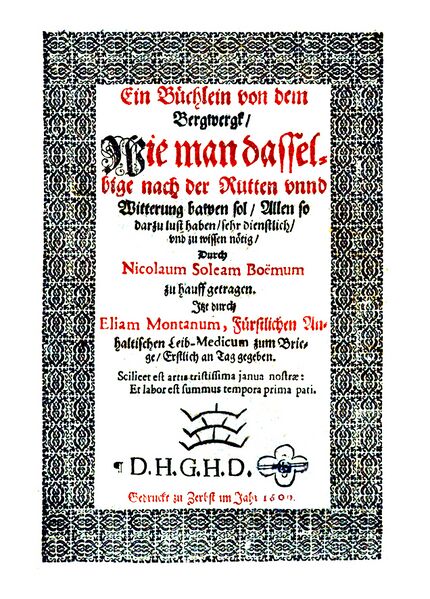 Ein Büchlein von dem
Bergwergk/
Wie man dassel-
bige nach der Rutten vnnd
Witterung bawen sol/ Allen so
darzu lust haben/ sehr dienstlich/
vnd zu wissen nötig/
Durch
Nicolaum Soleam Boëmum
zu hauff getragen.
Jtzt durch
Eliam Montanum, Fürstlichen An-
haltischen Leib-Medicum zum Brie-
ge/ Erstlich an Tag gegeben.
Scilicet est artis tristissima janua nostræ:
Et labor est summus tempora prima pati.
¶ D.H.G.H.D.
Gedruckt zu Zerbst im Jahr 1600.